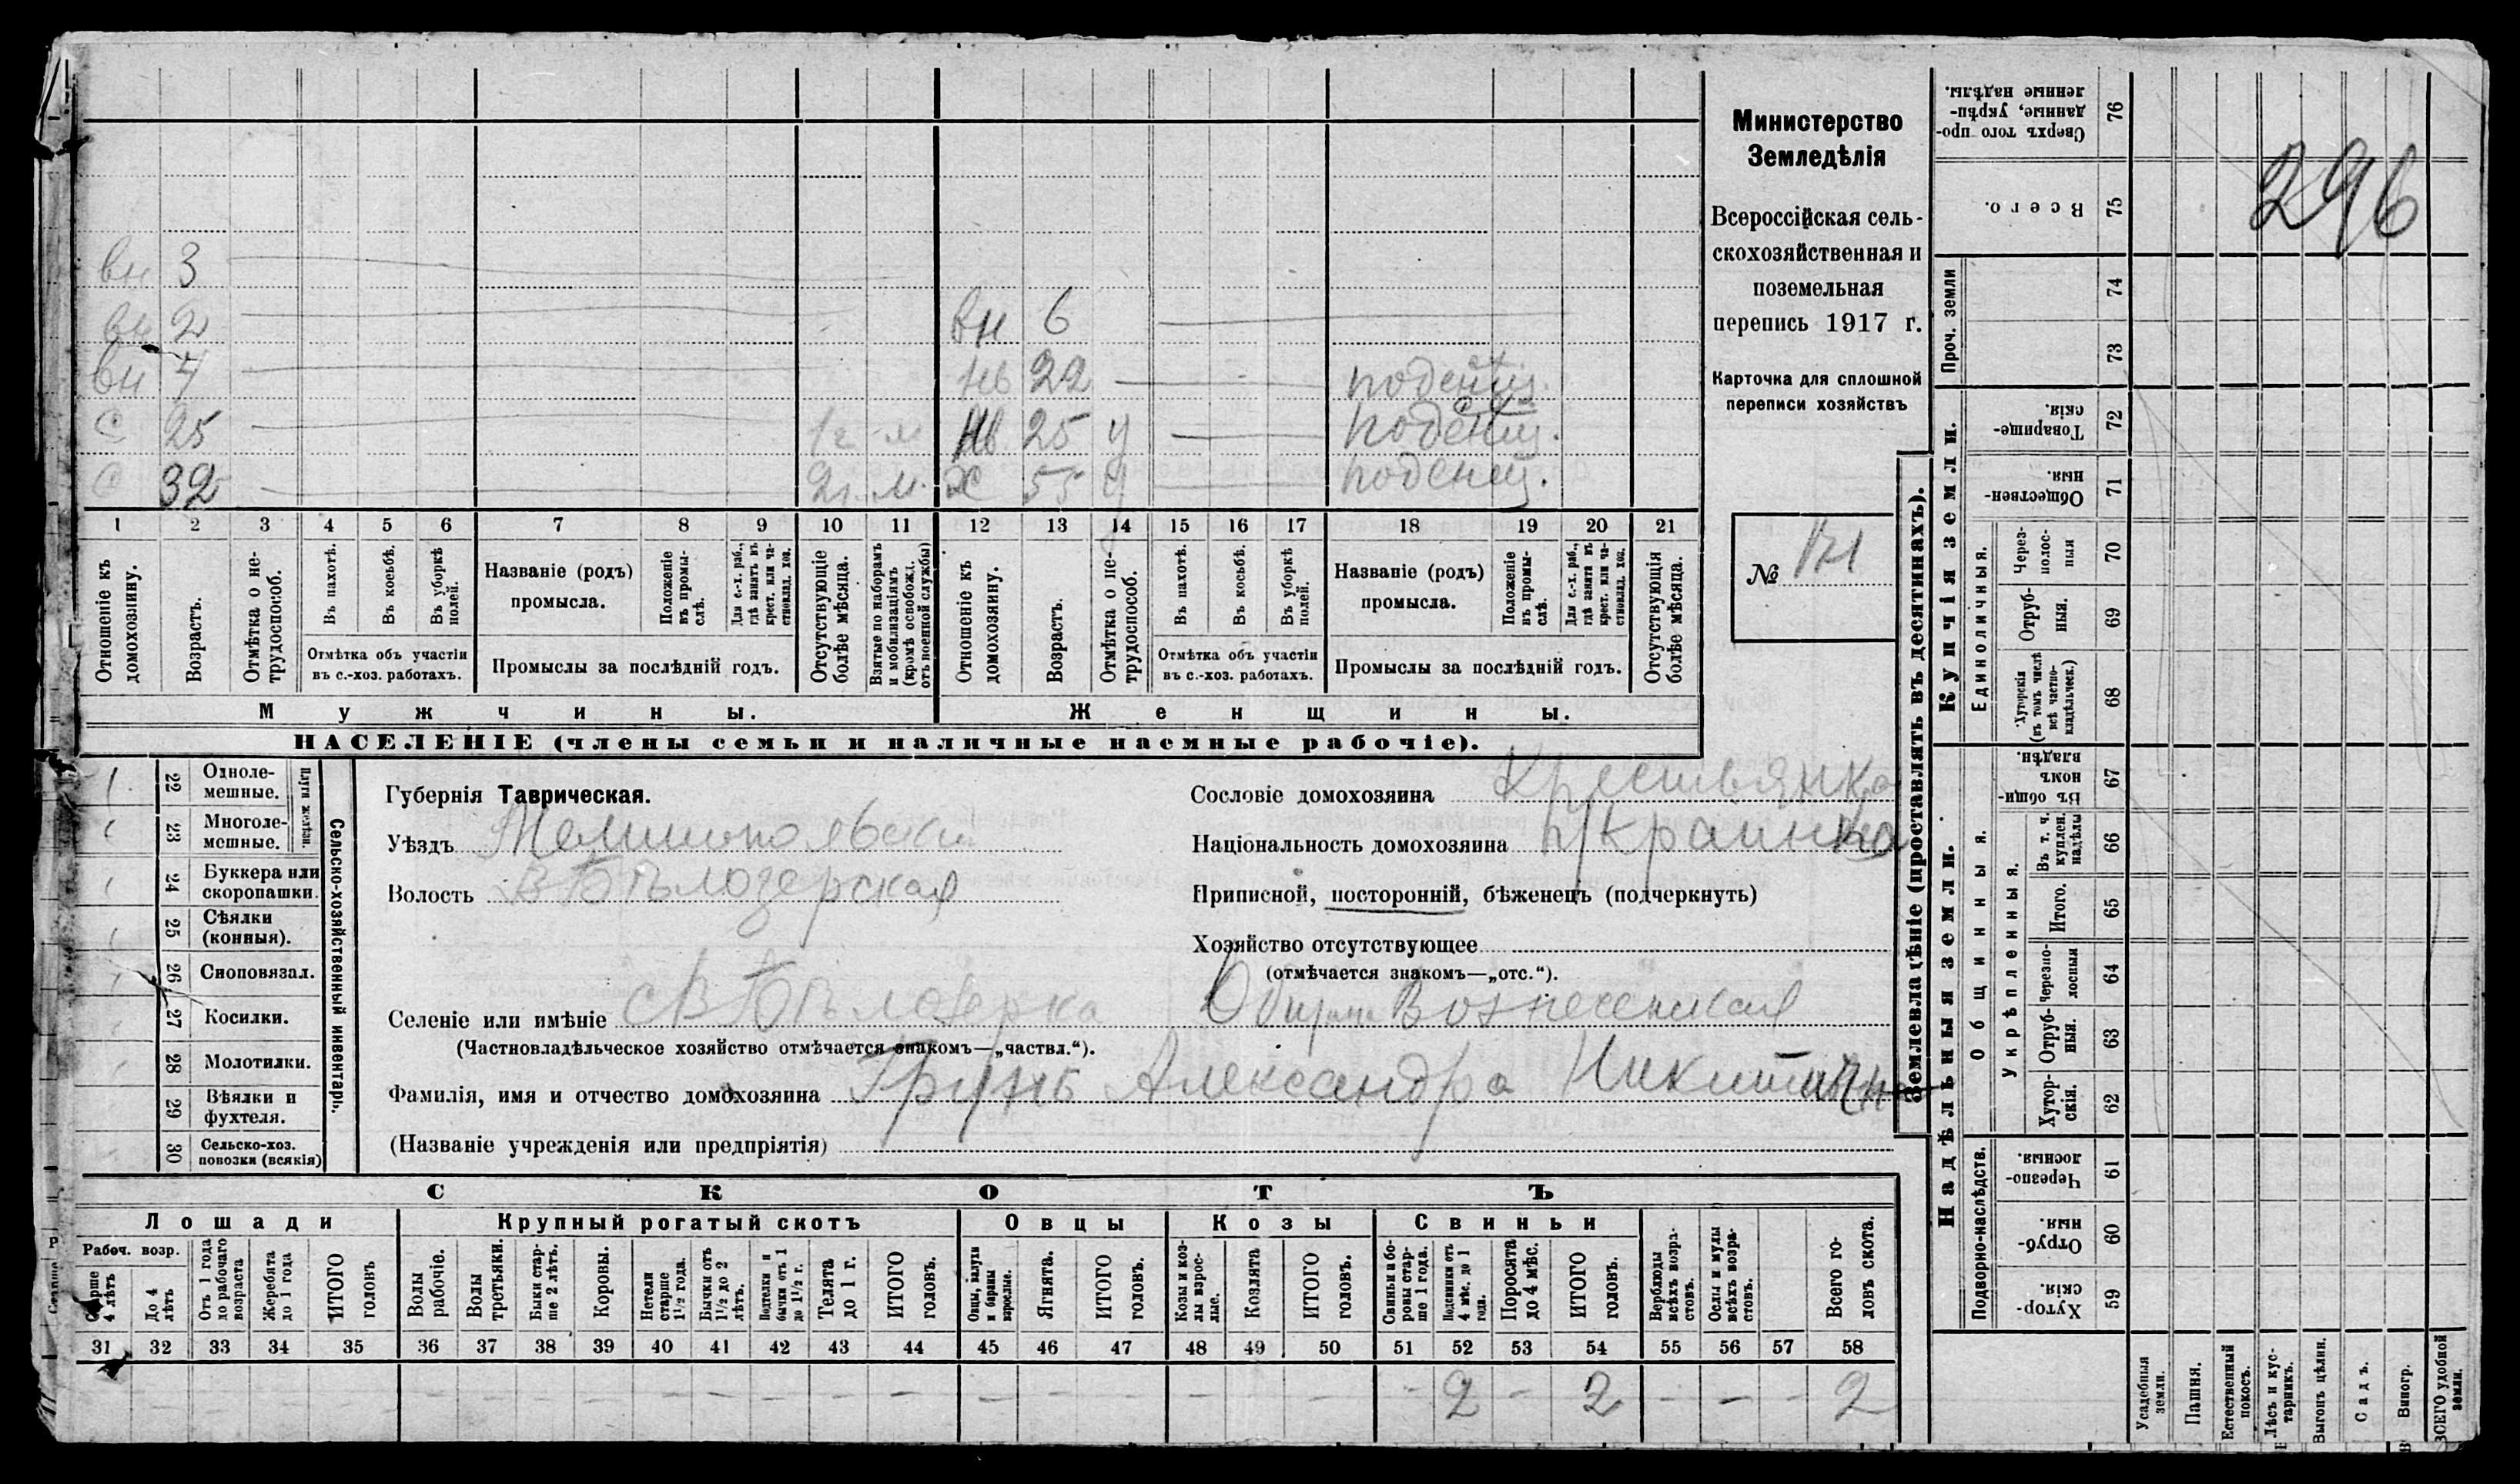 Министерство
Земледѣлія
Всероссійская сель-
скохозяйственная и
поземельная
перепись 1917 г.
Карточка для сплошной
переписи хозяйствъ
№
296
вн 3
вн 2 вн 6
вн 4 нв 22 поденщ.
с 25 1 г. м нв. 25 у поденщ.
с 32 2 г. м. ж 55 у поденщ.
1 2 3 4 5 6 7 8 9 10 11 12 13 14 15 16 17 18 19 20 21
Отношеніе къ домохозяину.
Возрастъ.
Отмѣтка о не-трудоспособ.
Въ пахотѣ.
Въ косьбѣ.
Въ уборкѣ полей.
Отмѣтка объ участіи
въ с.-хоз. работахъ.
Названіе (родъ)
промысла.
Положеніе въ промы-слѣ.
Для с.-х. раб., гдѣ занятъ въ крест. или ча-стновлад. хоз.
Промыслы за послѣдній годъ.
Отсутствующіе болѣе мѣсяца.
Взятые по наборамъ и мобилизаціямъ (кромѣ освобожд. отъ военной службы)
Отношеніе къ домохозяину.
Возрастъ.
Отмѣтка о не-трудоспособ.
Въ пахотѣ.
Въ косьбѣ.
Въ уборкѣ полей.
Отмѣтка объ участіи
въ с.-хоз. работахъ.
Названіе (родъ)
промысла.
Положеніе въ промы-слѣ.
Для с.-х. раб., гдѣ занята въ крест. или ча-стновлад. хоз.
Промыслы за послѣдній годъ.
Отсутствующія болѣе мѣсяца.
Мужчины. Женщины.
НАСЕЛЕНІЕ (члены семьи и наличные наемные рабочіе).
Сельско-хозяйственный инвентарь.
Плуги желѣзн.
22 Одноле-мешные.
23 Многоле-мешные.
24 Буккера или скоропашки.
25 Сѣялки (конныя).
26 Сноповязал.
27 Косилки.
28 Молотилки.
29 Вѣялки и фухтеля.
30 Сельско-хоз. повозки (всякія)
Губернія Таврическая.
Уѣздъ Мелитопольски
Волость В Бѣлозерская
Селеніе или имѣніе с В Бѣлозерка Вознесенская
(Частновладѣльческое хозяйство отмѣчается знакомъ—„частвл.“).
Фамилія, имя и отчество домохозяина Грунь Александра
(Названіе учрежденія или предпріятія)
Сословіе домохозяина Крестьянка
Національность домохозяина Украинка
Приписной, посторонній, бѣженецъ (подчеркнуть)
Хозяйство отсутствующее
(отмѣчается знакомъ—„отс.“).
СКОТЪ
Лошади Крупный рогатый скотъ Овцы Козы Свиньи
Рабоч. возр.
Старше 4 лѣтъ
До 4 лѣтъ
Отъ 1 года до рабочаго возраста
Жеребята до 1 года
ИТОГО головъ
Волы рабочіе.
Волы третьяки.
Быки стар-ше 2 лѣтъ.
Коровы.
Нетели старше 1 1/2 года.
Бычки отъ 1 1/2 до 2 лѣтъ.
Подтелки и бычки отъ 1 до 1 1/2 г.
Телята до 1 г.
ИТОГО головъ.
Овцы, валухи и бараны взрослые.
Ягнята.
ИТОГО головъ.
Козы и коз-лы взрос-лые.
Козлята
ИТОГО головъ.
Свиньи и бо-ровы стар-ше 1 года.
Подсвинки отъ 4 мѣс. до 1 года.
Поросята до 4 мѣс.
ИТОГО головъ.
Верблюды всѣхъ возра-стовъ.
Ослы и мулы всѣхъ возра-стовъ.
Всего го-ловъ скота.
31 32 33 34 35 36 37 38 39 40 41 42 43 44 45 46 47 48 49 50 51 52 53 54 55 56 57 58
– – – – – – – – – – – – – – – – – – – – – 2 – 2 – – – 2
Землевладѣніе (проставлять въ десятинахъ).
Надѣльныя земли. Купчія земли. Проч. земли
Подворно-наслѣдств.
Общинныя.
Укрѣпленныя.
Единоличныя.
Хутор-скія. 59
Отруб-ныя. 60
Черезпо-лосныя. 61
Хутор-скія. 62
Отруб-ныя. 63
Черезпо-лосныя 64
Итого. 65
Въ т. ч. куплен. надѣлы 66
Въ общин-номъ владѣн. 67
Хуторскія (въ томъ числѣ всѣ частно-владѣльческ.) 68
Отруб-ныя. 69
Через-полос-ныя 70
Обществен-ныя. 71
Товарище-скія. 72
73
74
Всего. 75
Сверхъ того про-данные, укрѣп-ленные надѣлы. 76
Усадебныя земли.
Пашня.
Естественный покосъ.
Лѣсъ и кус-тарникъ.
Выгонъ цѣлин.
Садъ.
Виногр.
ВСЕГО удобной земли.